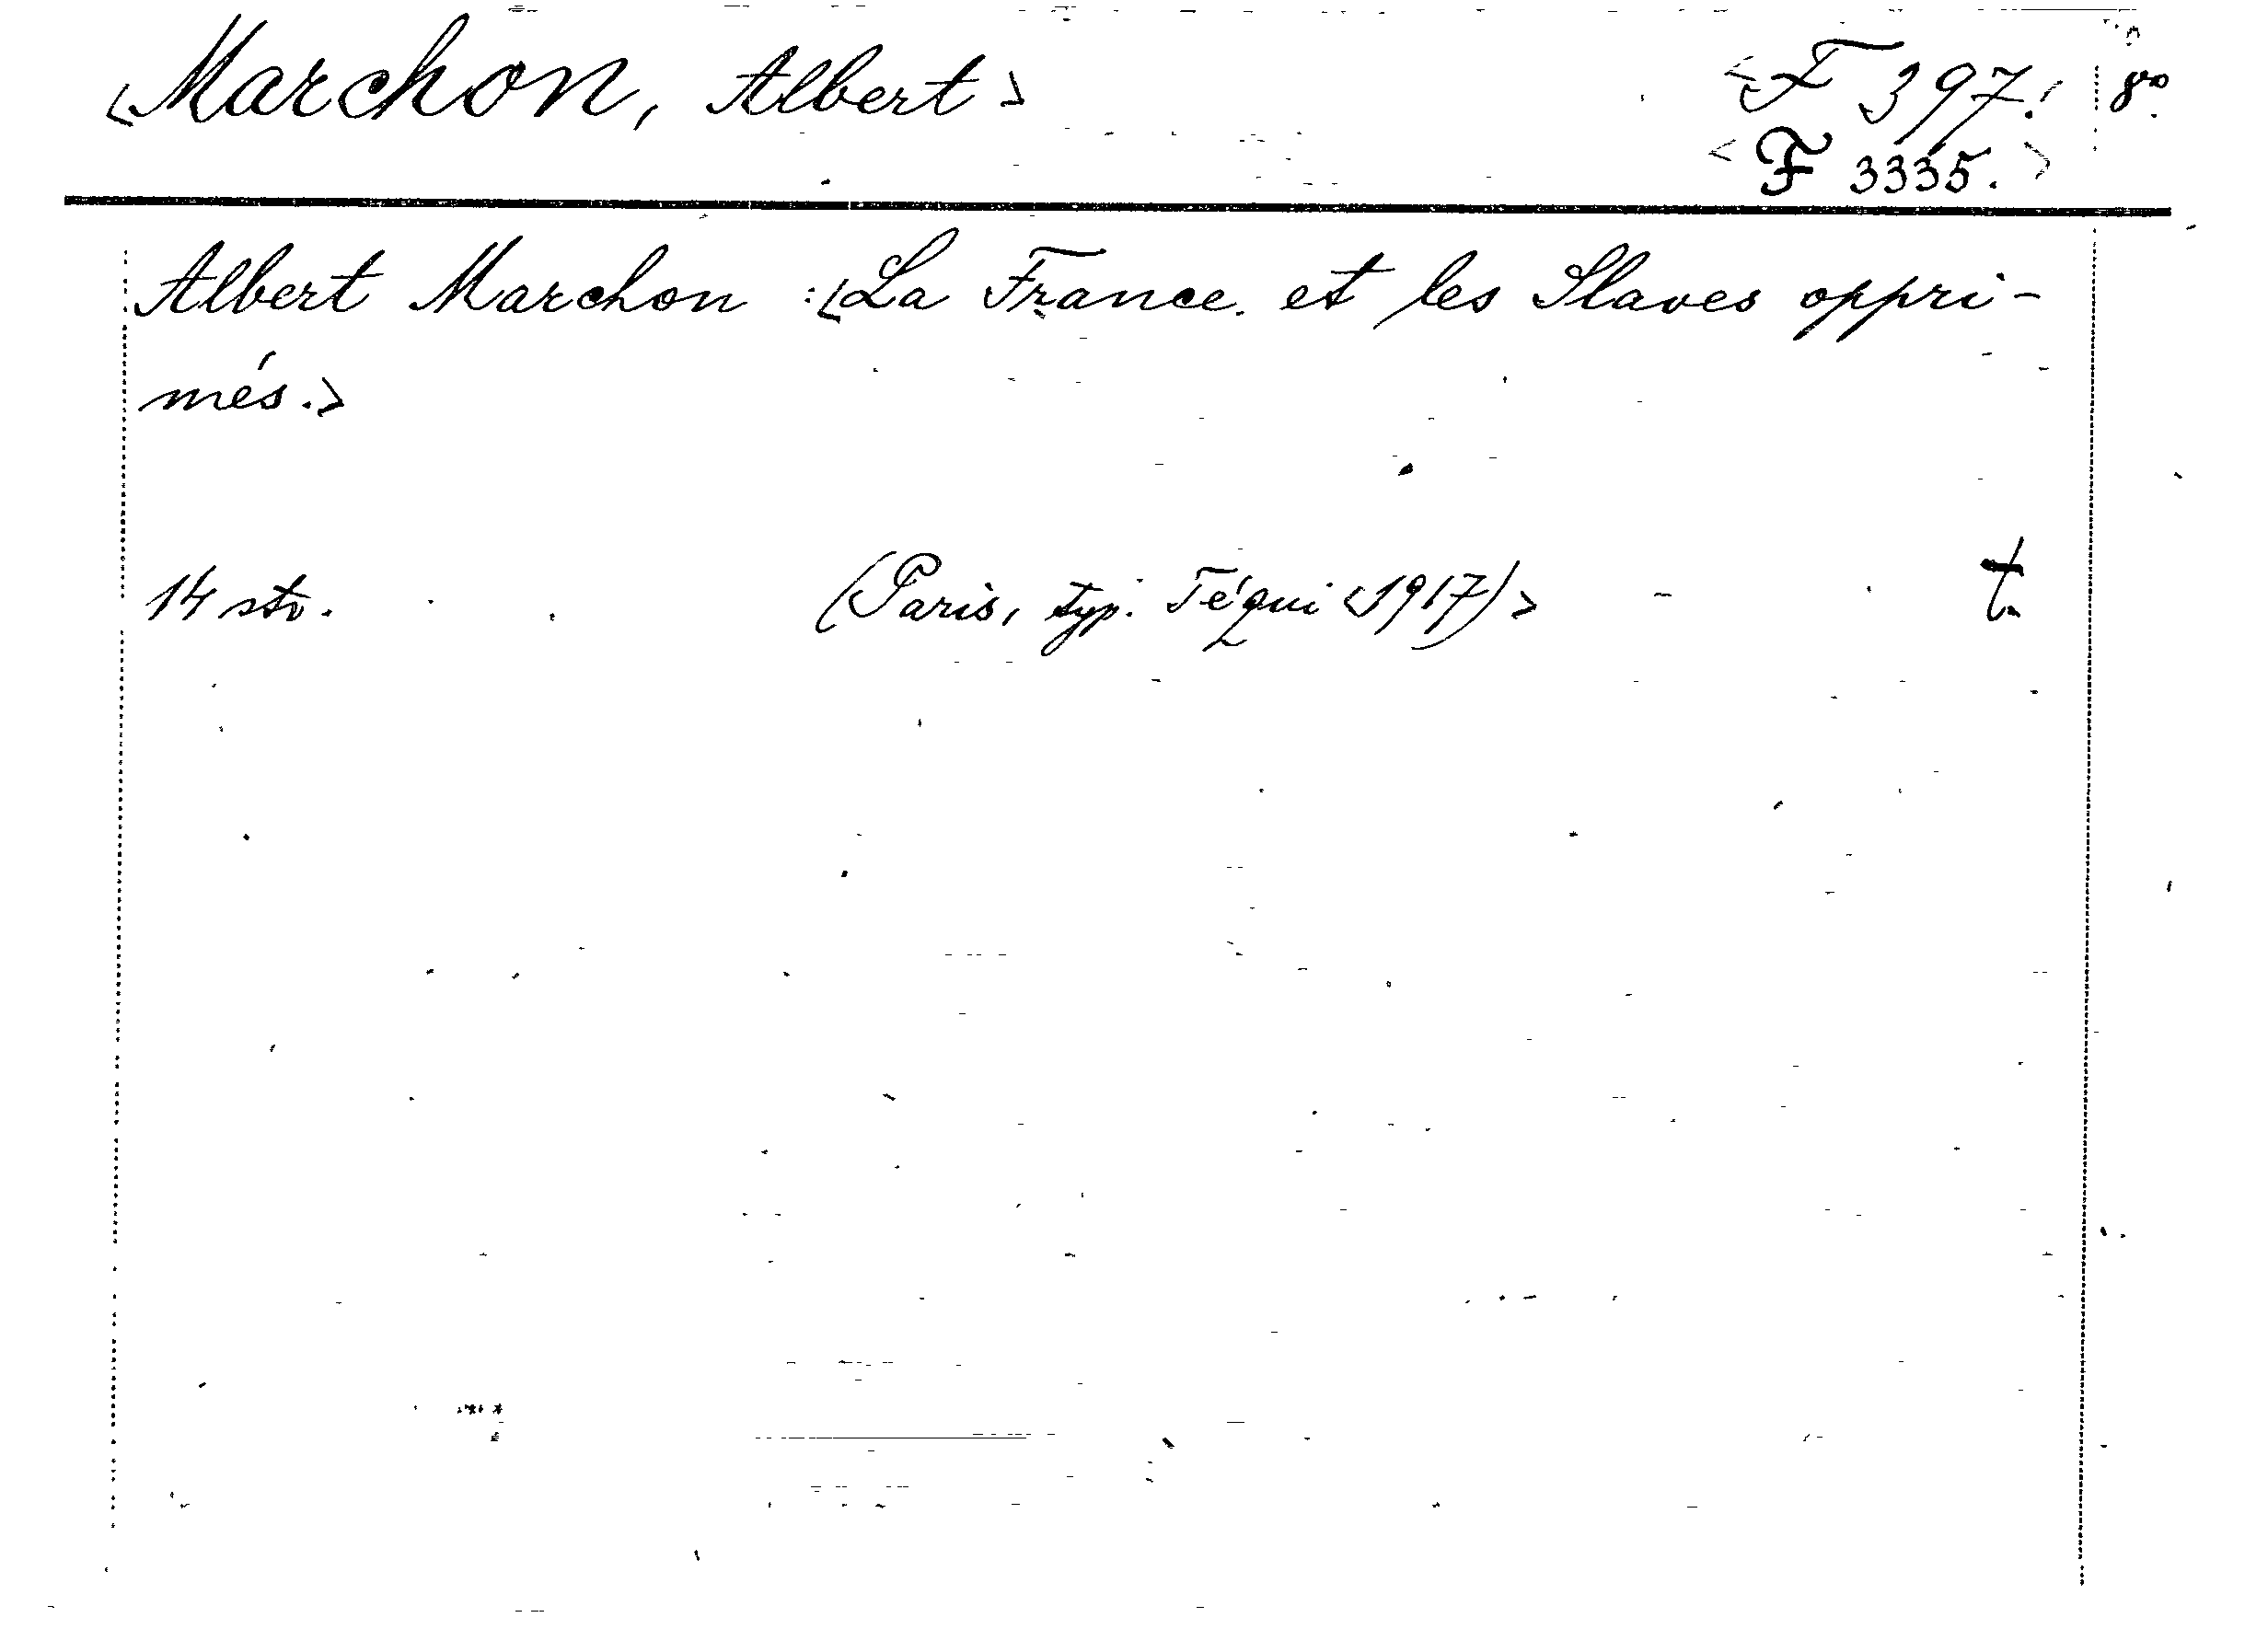 <Marchon, Albert> <F 397. 8°
<F 3335.>
Albert Marchon : <La France et les Slaves oppri-
més.>
14 str. (Paris, typ. Téqui <1917)> t.